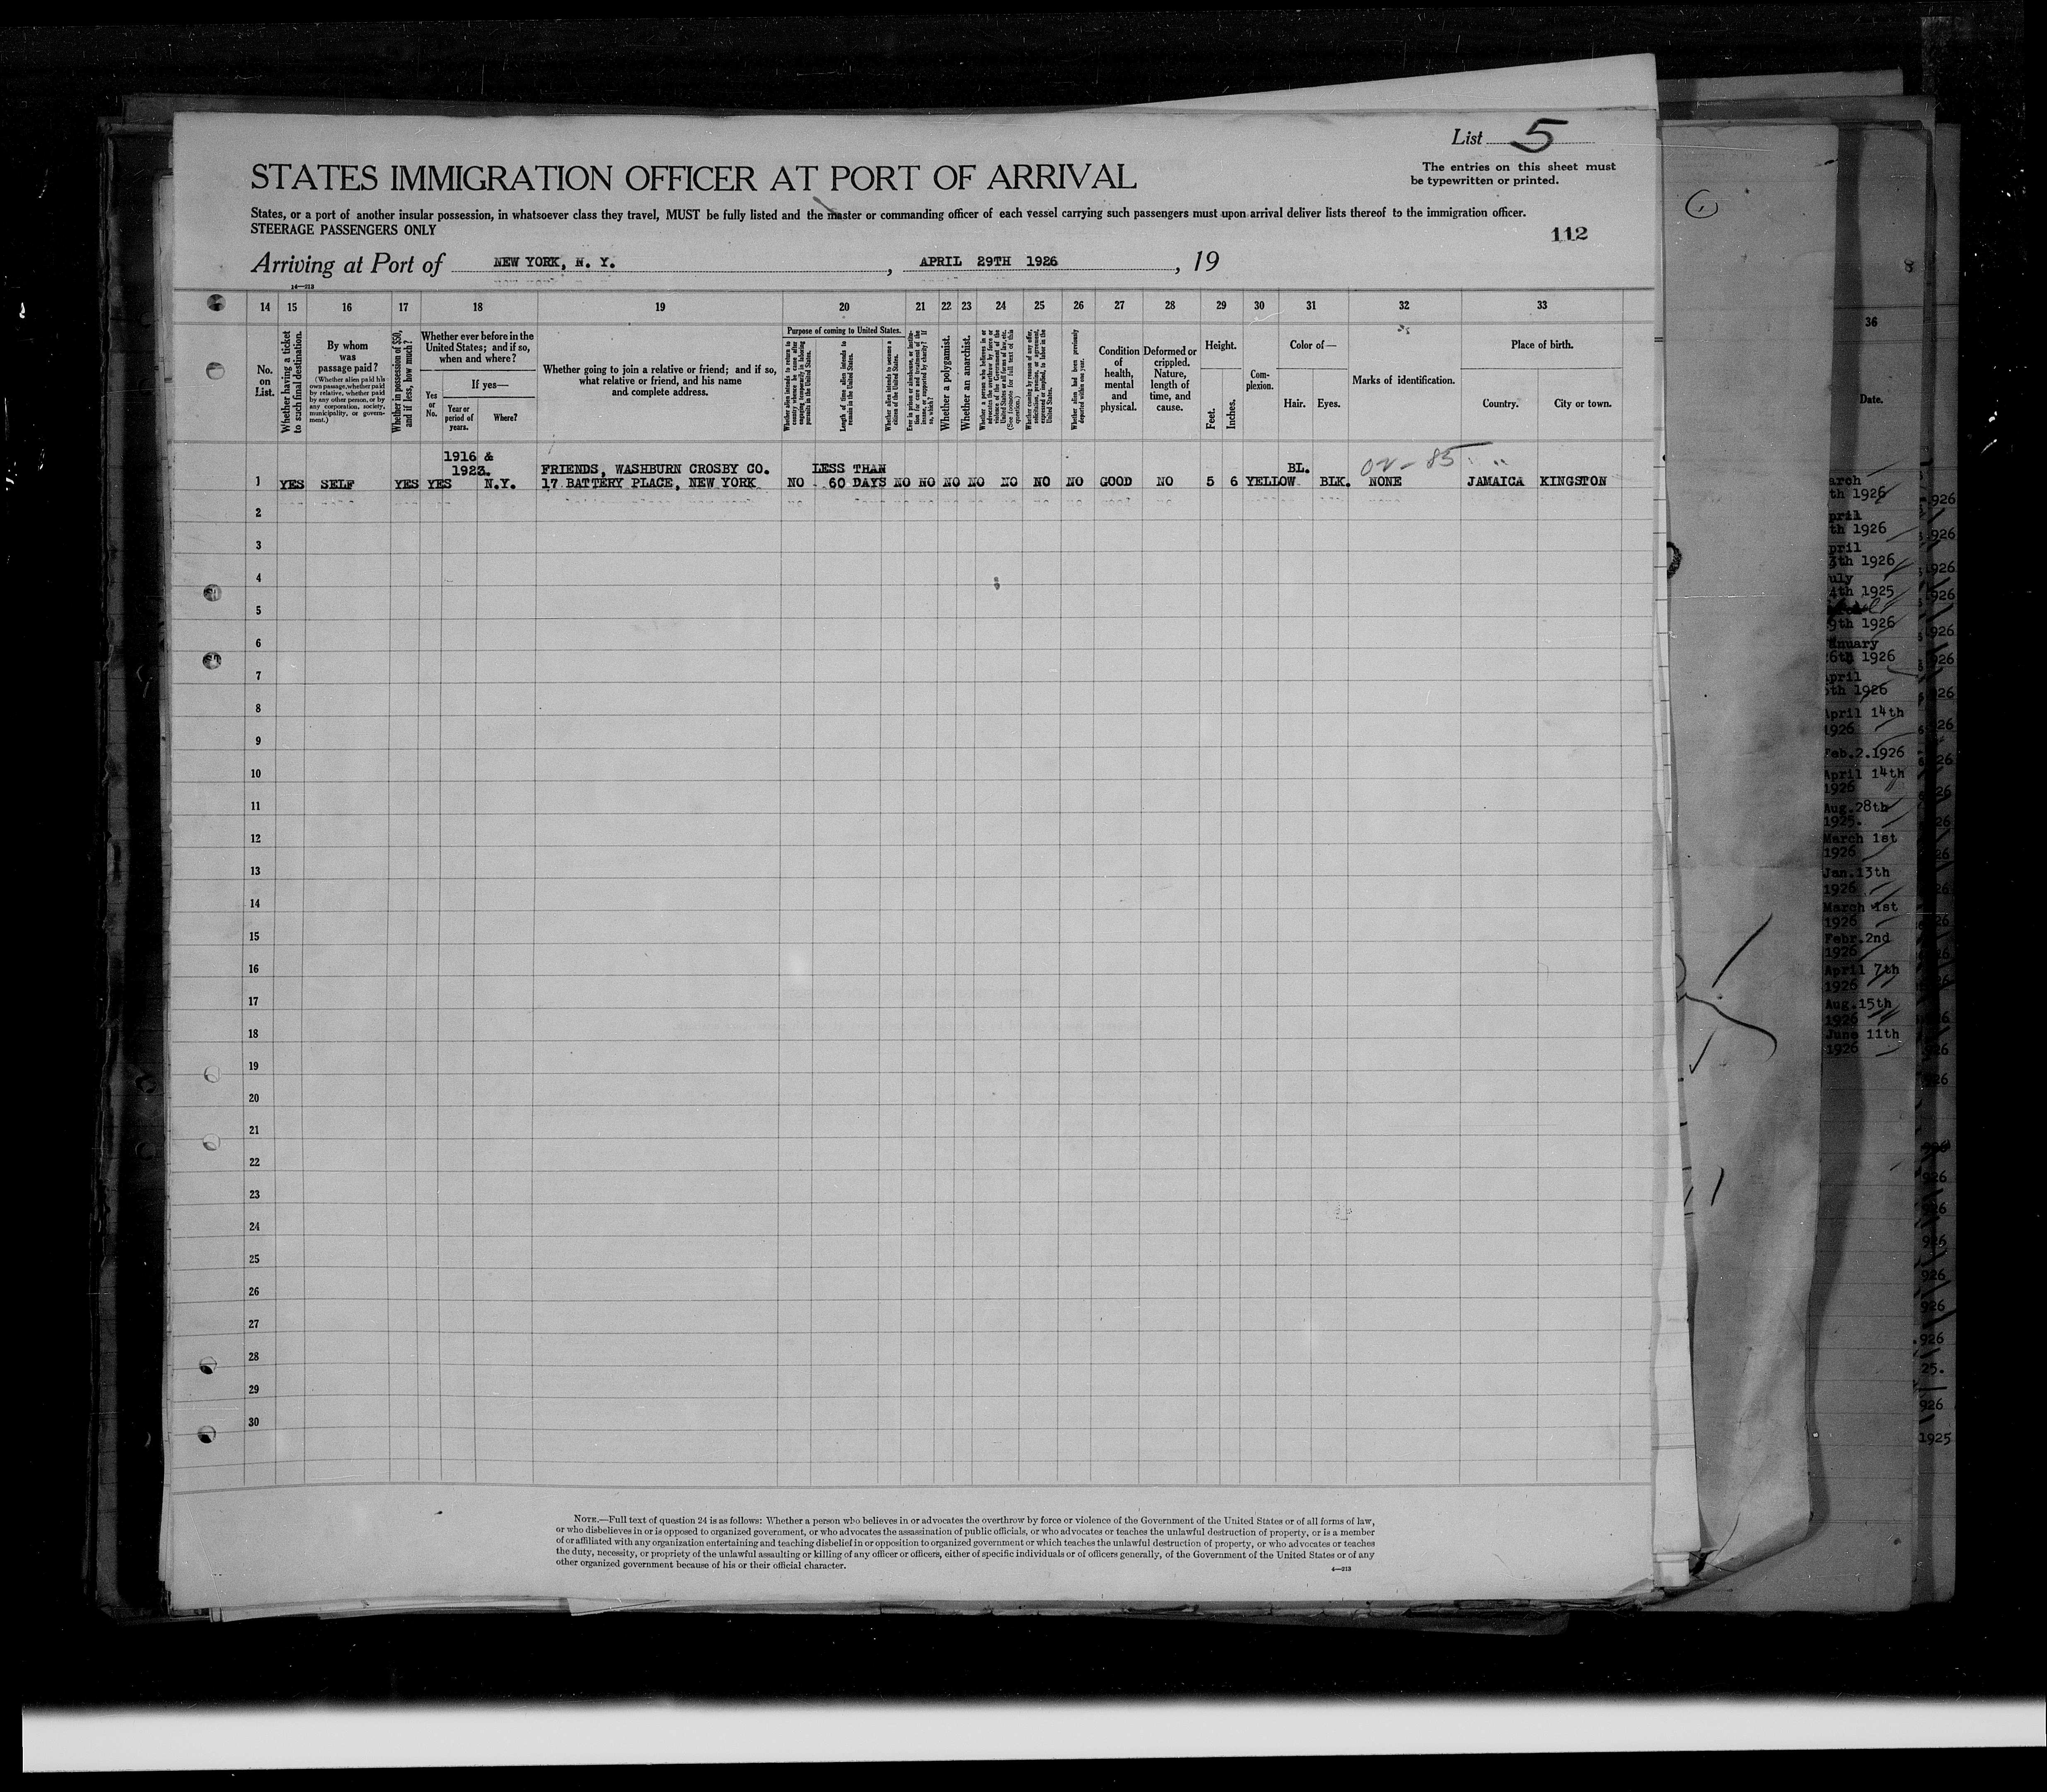 List 5
The entries on this sheet must
be typewritten or printed.
STATES IMMIGRATION OFFICER AT PORT OF ARRIVAL
States, or a port of another insular possession, in whatsoever class they travel, MUST be fully listed and the master or commanding officer of each vessel carrying such passengers must upon arrival deliver lists thereof to the immigration officer.
STEERAGE PASSENGERS ONLY
112
Arriving at Port of NEW YORK, N. Y. , APRIL 29TH 1926 , 19
14—213
14 15 16 17 18 19 20 21 22 23 24 25 26 27 28 29 30 31 32 33
No. on List.
Whether having a ticket to such final destination.
By whom was passage paid?
(Whether alien paid his own passage, whether paid by relative, whether paid by any other person, or by any corporation, society, municipality, or government.)
Whether in possession of $50, and if less, how much?
Whether ever before in the United States; and if so, when and where?
Yes or No.
If yes—
Year or period of years.
Where?
Whether going to join a relative or friend; and if so, what relative or friend, and his name and complete address.
Purpose of coming to United States.
Whether alien intends to return to country whence he came after engaging temporarily in laboring pursuits in the United States.
Length of time alien intends to remain in the United States.
Whether alien intends to become a citizen of the United States.
Ever in prison or almshouse, or institution for care and treatment of the insane, or supported by charity? If so, which?
Whether a polygamist.
Whether an anarchist.
Whether a person who believes in or advocates the overthrow by force or violence of the Government of the United States or all forms of law, etc. (See footnote for full text of this question.)
Whether coming by reason of any offer, solicitation, promise, or agreement, expressed or implied, to labor in the United States.
Whether alien had been previously deported within one year.
Condition of health, mental and physical.
Deformed or crippled. Nature, length of time, and cause.
Height.
Feet.
Inches.
Complexion.
Color of—
Hair.
Eyes.
Marks of identification.
Place of birth.
Country.
City or town.
1916 &
1923.
FRIENDS, WASHBURN CROSBY CO.
LESS THAN
BL.
1 YES SELF YES YES N.Y. 17 BATTERY PLACE, NEW YORK NO 60 DAYS NO NO NO NO NO NO NO GOOD NO 5 6 YELLOW BLK. NONE JAMAICA KINGSTON
2
3
4
5
6
7
8
9
10
11
12
13
14
15
16
17
18
19
20
21
22
23
24
25
26
27
28
29
30
NOTE.—Full text of question 24 is as follows: Whether a person who believes in or advocates the overthrow by force or violence of the Government of the United States or of all forms of law,
or who disbelieves in or is opposed to organized government, or who advocates the assassination of public officials, or who advocates or teaches the unlawful destruction of property, or is a member
of or affiliated with any organization entertaining and teaching disbelief in or opposition to organized government or which teaches the unlawful destruction of property, or who advocates or teaches
the duty, necessity, or propriety of the unlawful assaulting or killing of any officer or officers, either of specific individuals or of officers generally, of the Government of the United States or of any
other organized government because of his or their official character.
4—213
36
Date.
th 1926
th 1926
1926
1925
9th 1926
6th 1926
1926
April 14th
1926
Feb.2.1926
April 14th
1926
Aug.28th
1925.
March 1st
1926
Jan.13th
1926
March 1st
1926
Febr.2nd
1926
April 7th
1926
Aug.15th
1926
June 11th
1926
1925